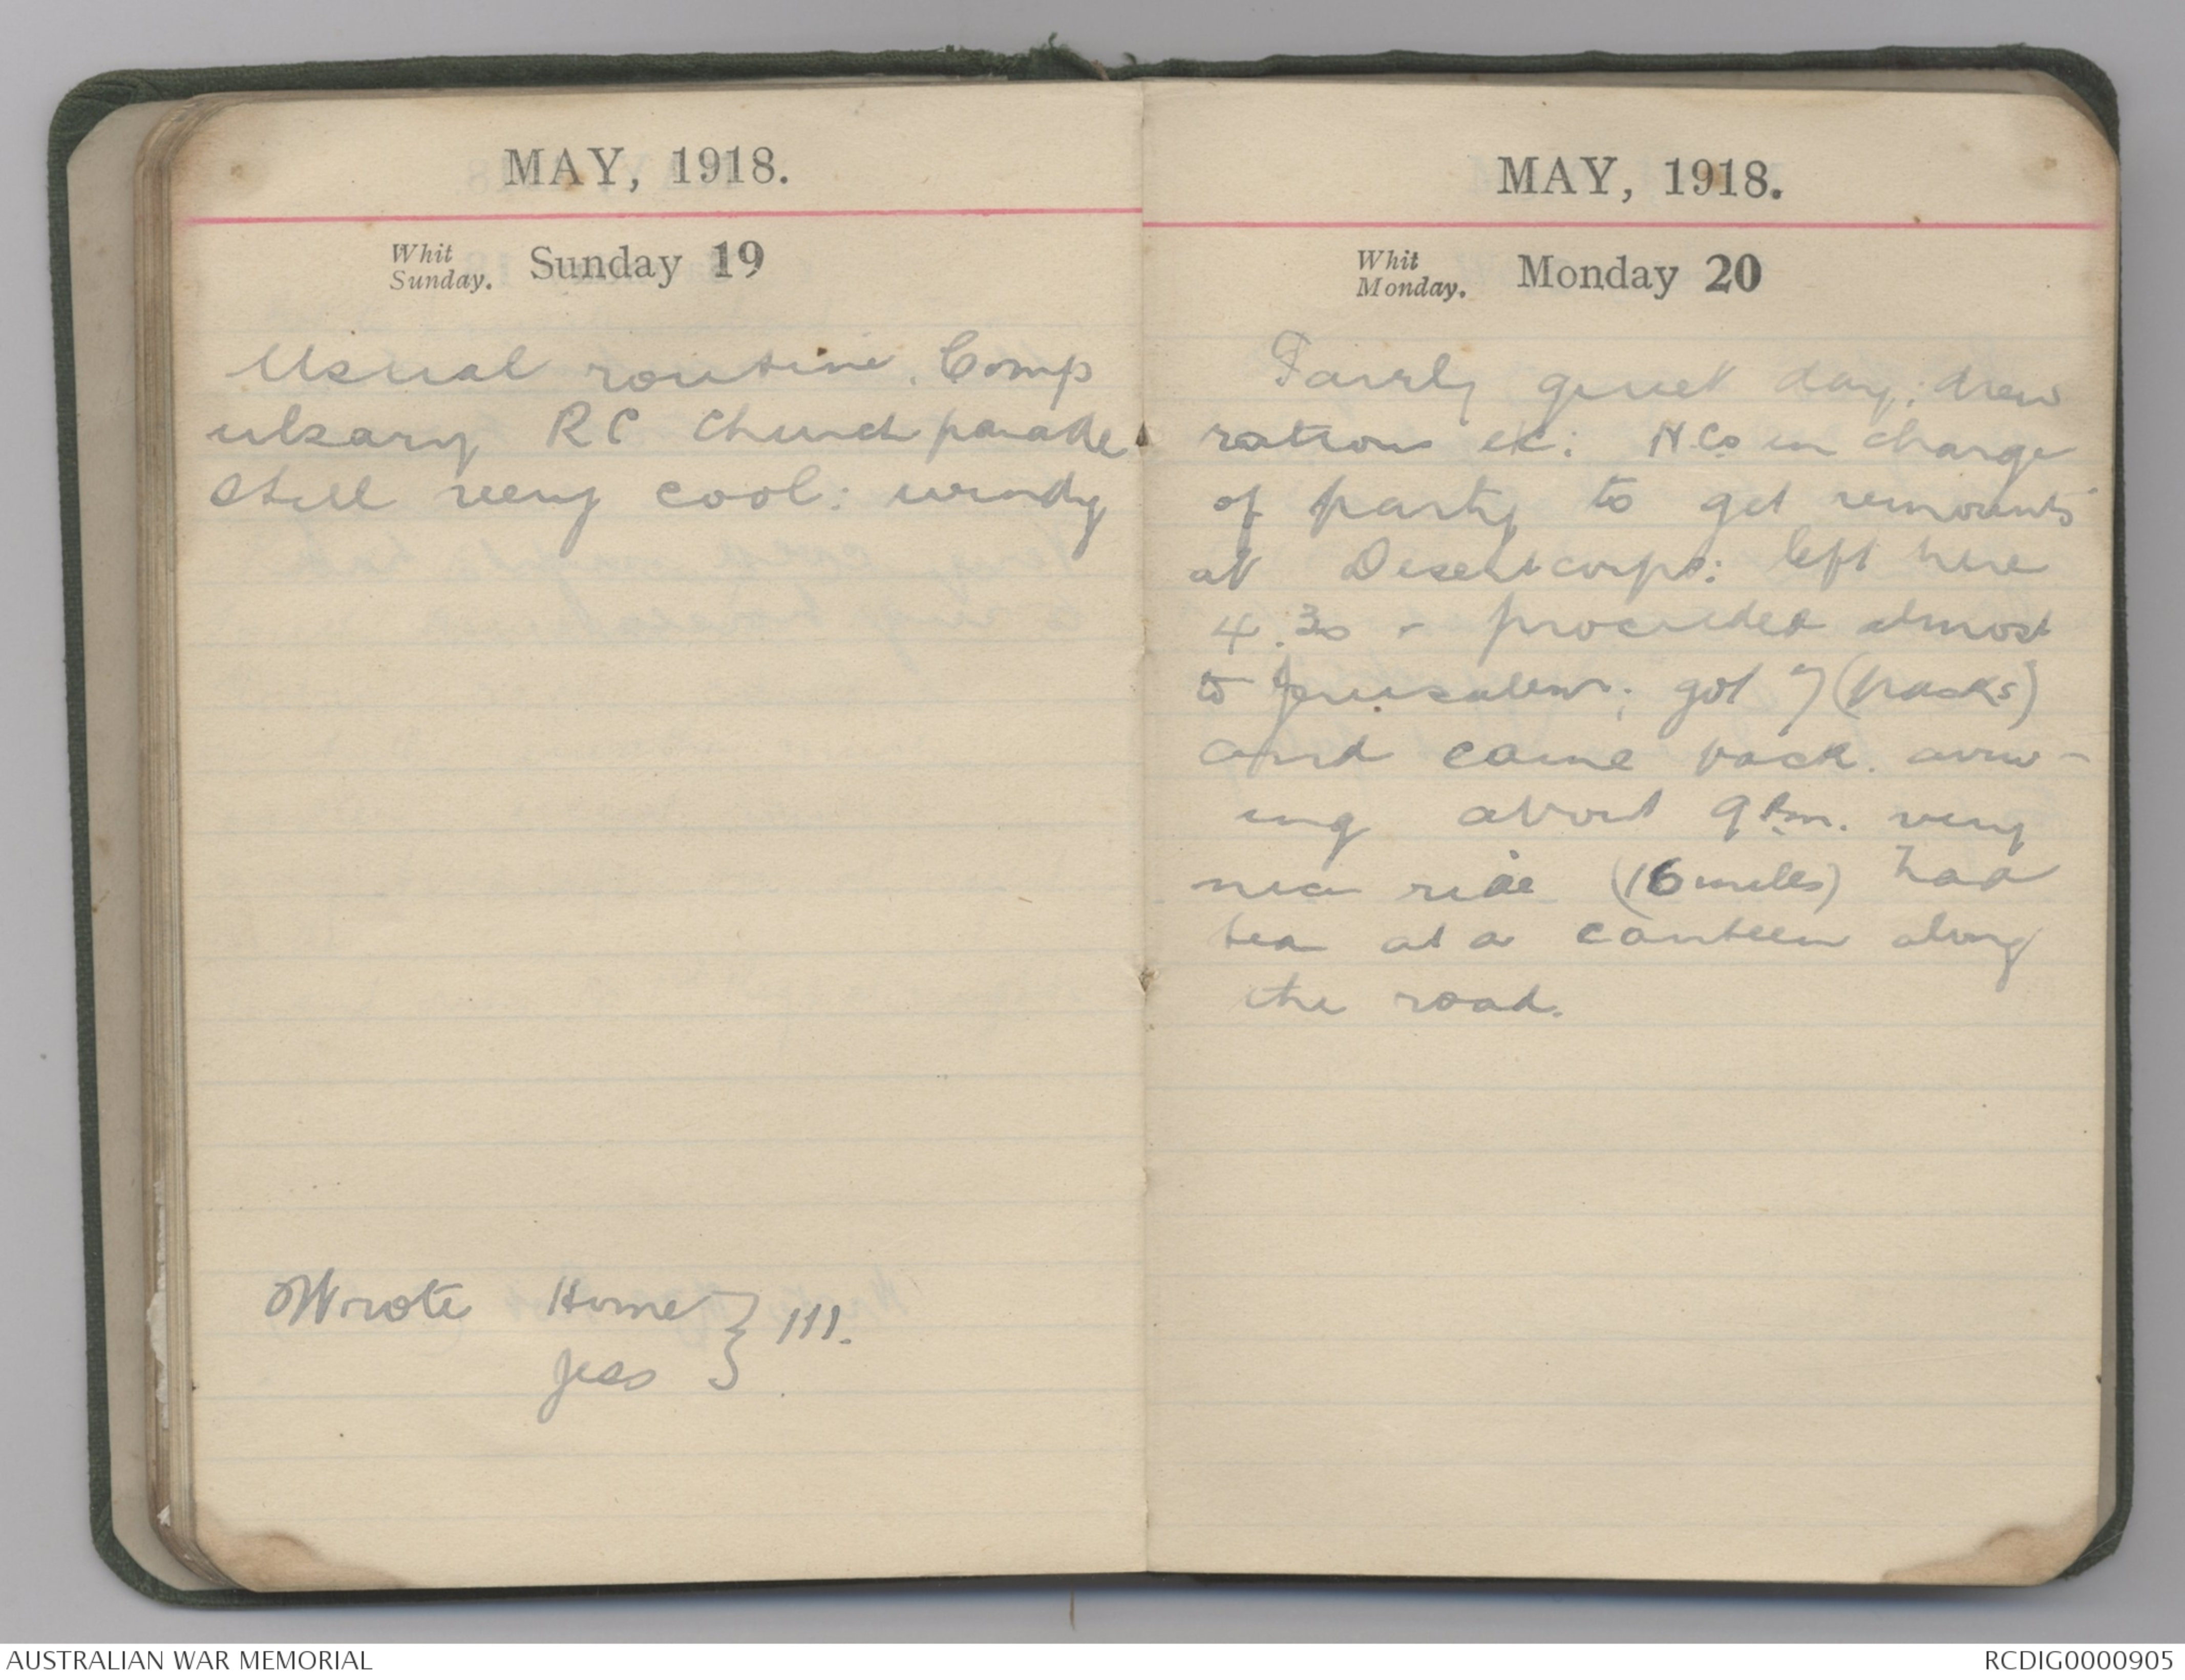 MAY, 1918.
Whit Sunday. Sunday 19
Usual routine. Comp
ulsary RC Church parade.
Still very cool: windy
Wrote Home } 111.
Jess
MAY, 1918.
Whit Monday. Monday 20
Fairly quiet day; drew
rations etc: N.Co in charge
of party to get remounts
at Desertcorps: left here
4.30 - proceeded almost
to Jerusalem; got 7 (packs)
and came back. arriv-
ing about 9 P.m. very
nice ride (16 miles) had
tea at a canteen along
the road.
AUSTRALIAN WAR MEMORIAL
RCDIG0000905